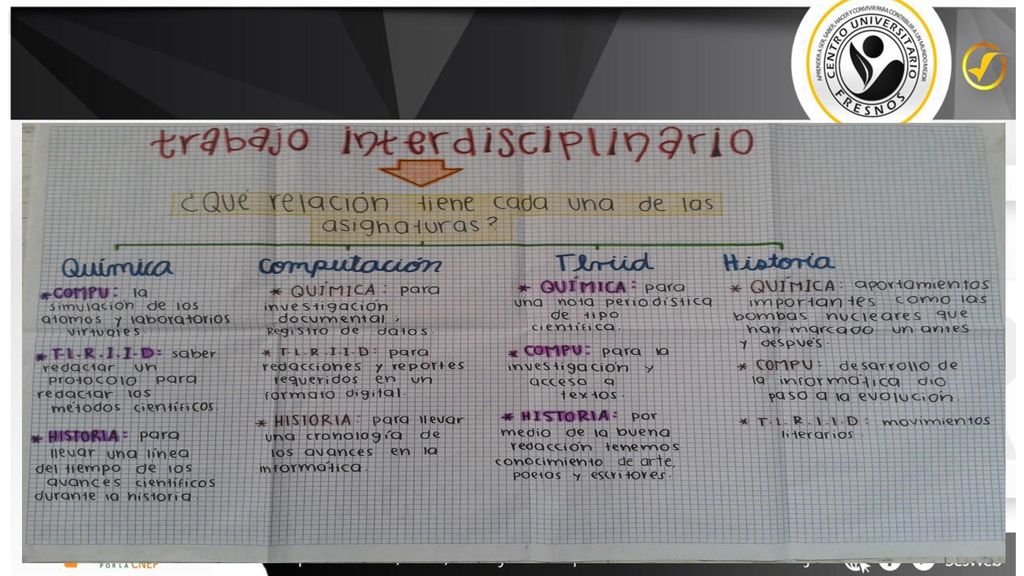 APRENDER A SER, SABER, HACER Y CONVIVIR PARA CONTRIBUIR A UN MUNDO MEJOR
CENTRO UNIVERSITARIO
FRESNOS
trabajo interdisciplinario
¿Qué relación tiene cada una de las
asignaturas?
Química
*COMPU: la
simulación de los
atomos y laboratorios
virtuales.
*T-L-R-I-I-D: saber
redactar un
protocolo para
redactar los
métodos científicos.
*HISTORIA: para
llevar una línea
del tiempo de los
avances científicos
durante la historia.
Computación
* QUÍMICA: para
investigación
documental,
Registro de datos.
* T-L-R-I-I-D: para
redacciones y reportes
requeridos en un
formato digital.
* HISTORIA: para llevar
una cronología de
los avances en la
informatica.
Tlriid
* QUÍMICA: para
una nota periodística
de tipo
científica.
* COMPU: para la
investigación y
acceso a
textos.
* HISTORIA: por
medio de la buena
redacción tenemos
conocimiento de arte,
poetas y escritores.
Historia
* QUÍMICA: aportamientos
importantes como las
bombas nucleares que
han marcado un antes
y después.
* COMPU: desarrollo de
la informática dio
paso a la evolución.
* T.L.R.I.I.D: movimientos
literarios.
POR LA CNEP